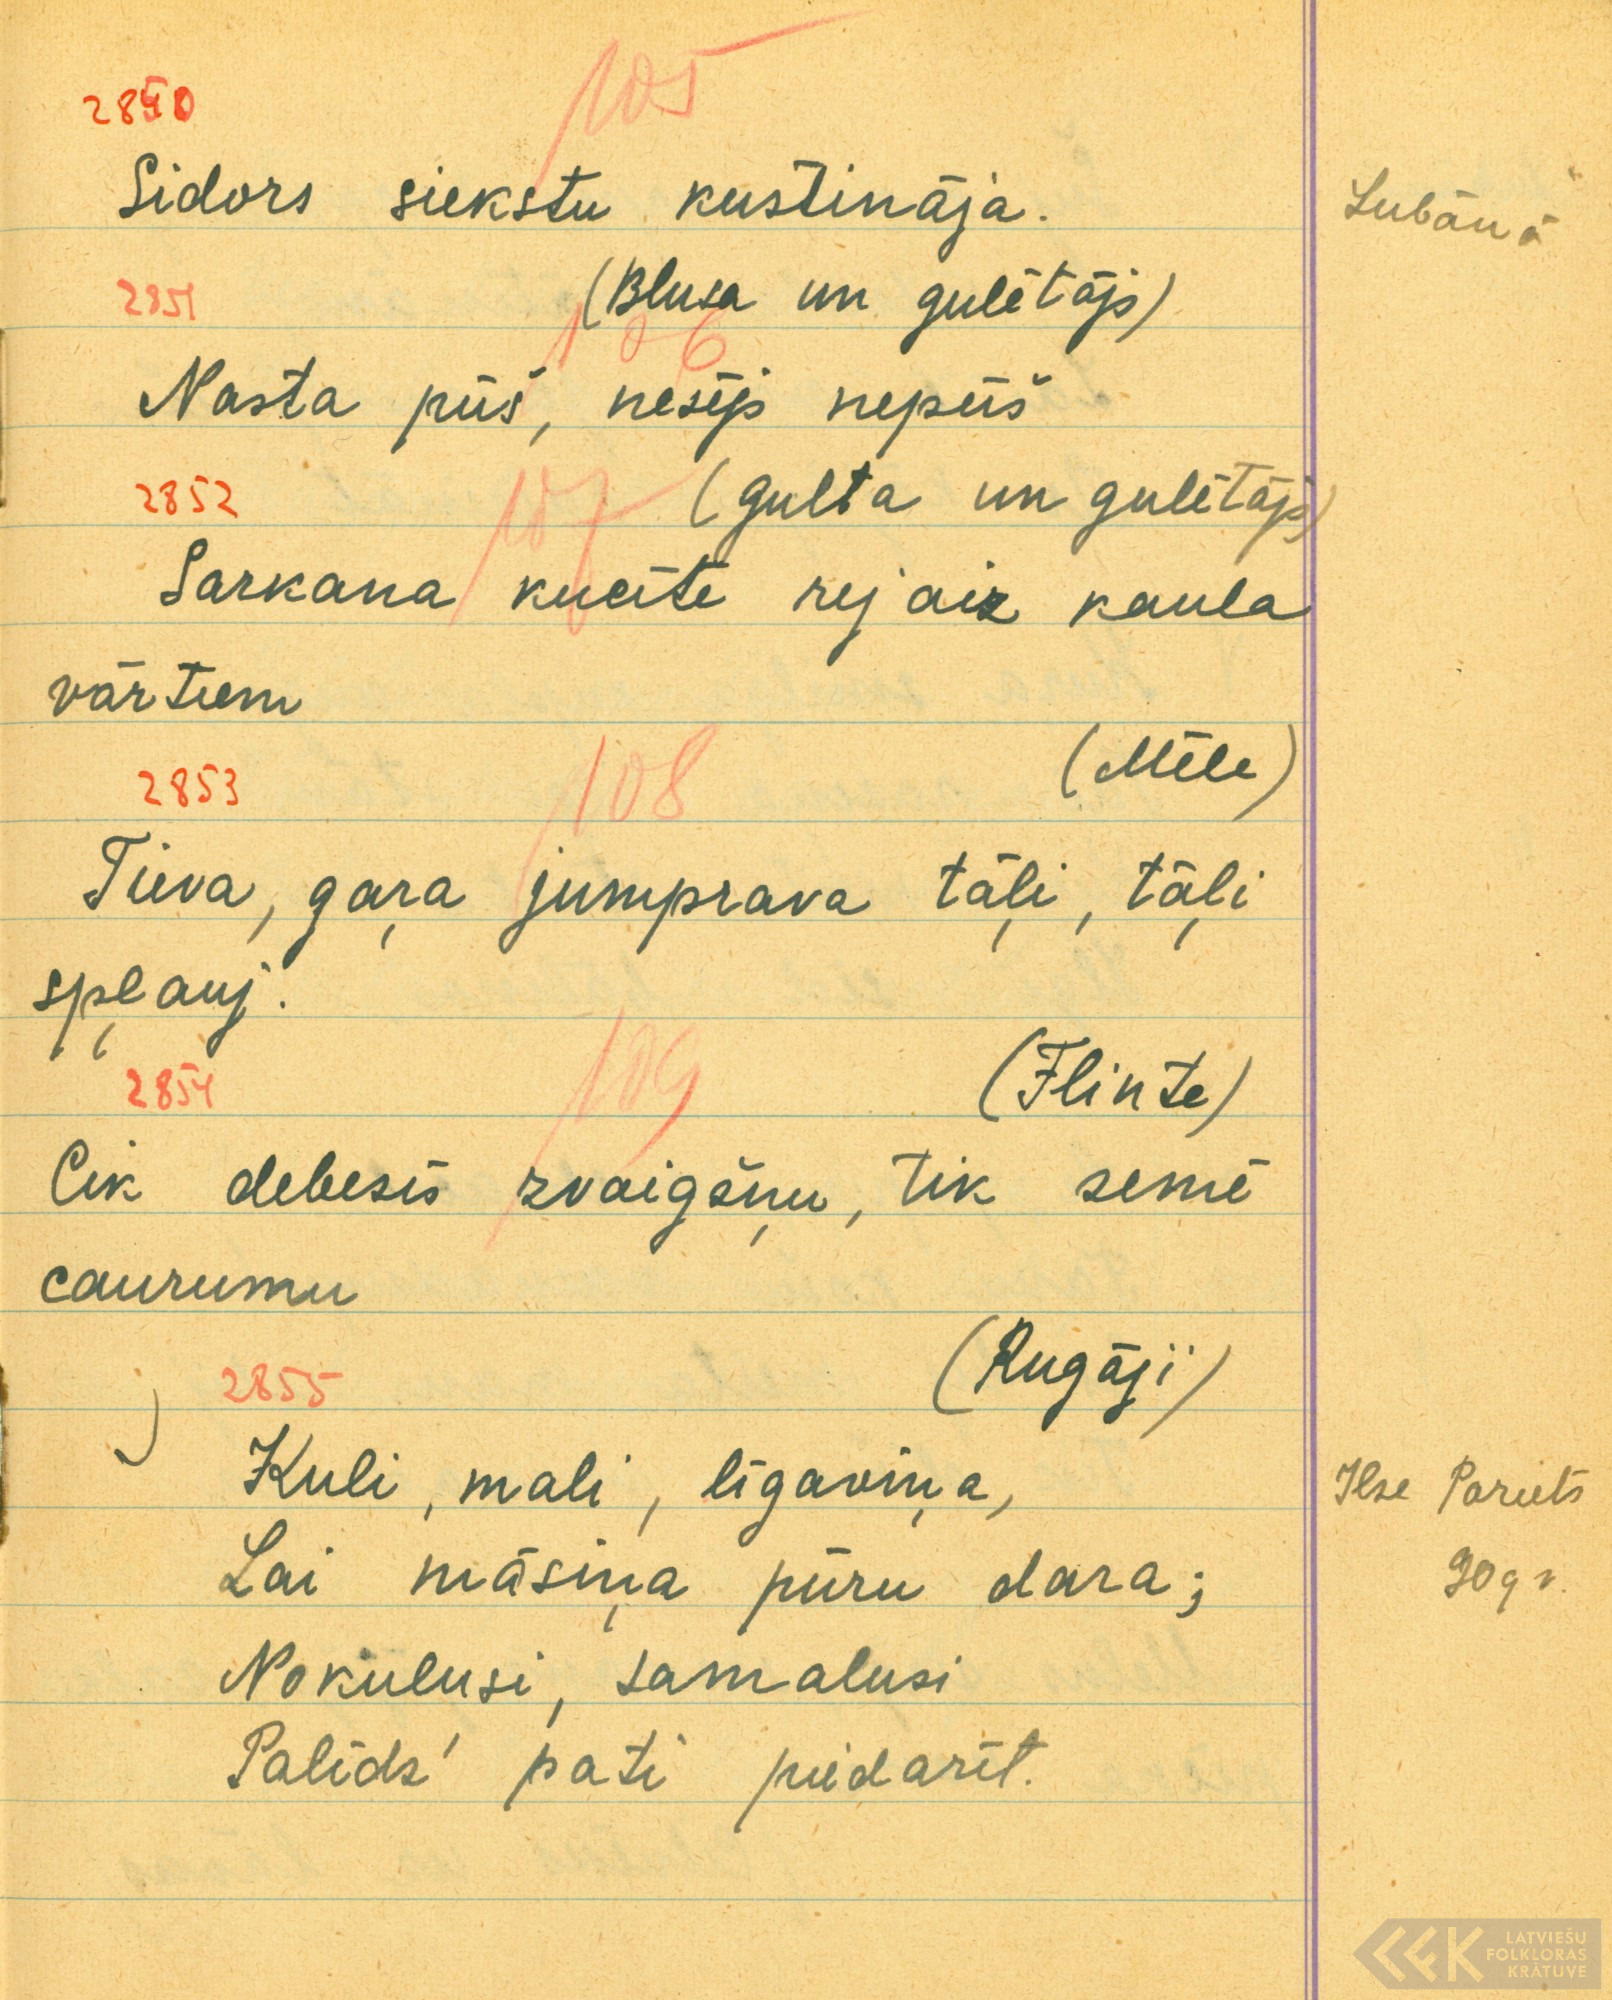 105
2850
Sidors siekstu kustināja.
Lubānā
2851
(Blusa un gulētājs)
106
Nasta pūš, nesējs nepūš
2852
107
(Gulta un gulētājs)
Sarkana kucīte rej aiz kaula
vārtiem
(Mēle)
2853
108
Tieva, gaŗa jumprava tāļi, tāļi
spļauj.
(Flinte)
2854
109
Cik debesīs zvaigšņu, tik zemē
caurumu
(Rugāji)
2855
Kuli, mali, līgaviņa,
Ilze
Lai māsiņa pūru dara;
90 g v.
Nokulusi, samalusi
Palīdz' pati piedarīt.
LATVIEŠU
FOLKLORAS
KRĀTUVE